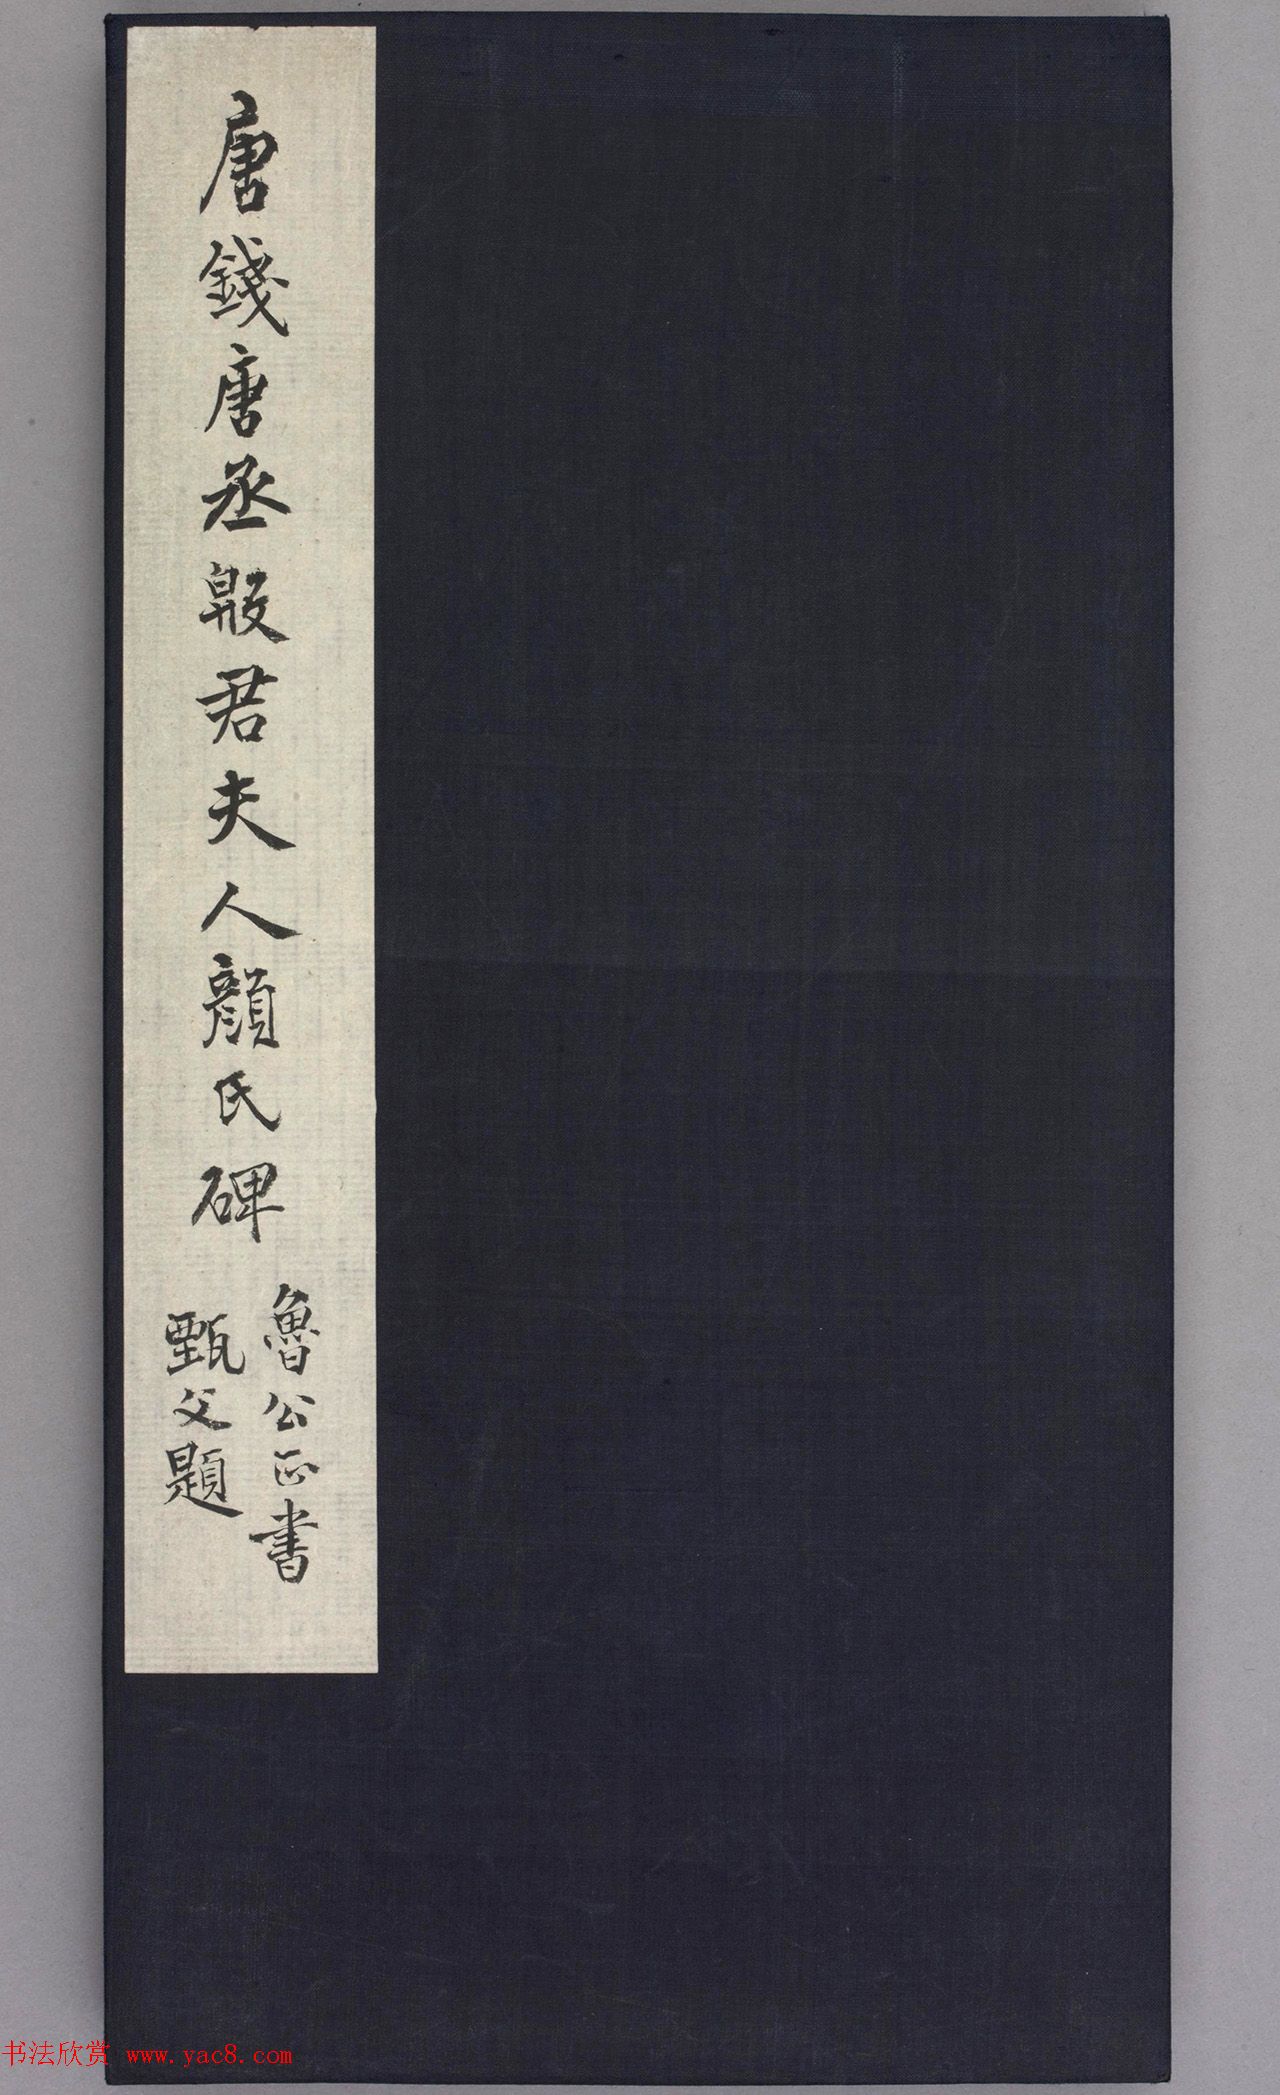 唐錢唐丞殷君夫人顏氏碑
魯公正書
甄父題
书法欣赏 www.yac8.com